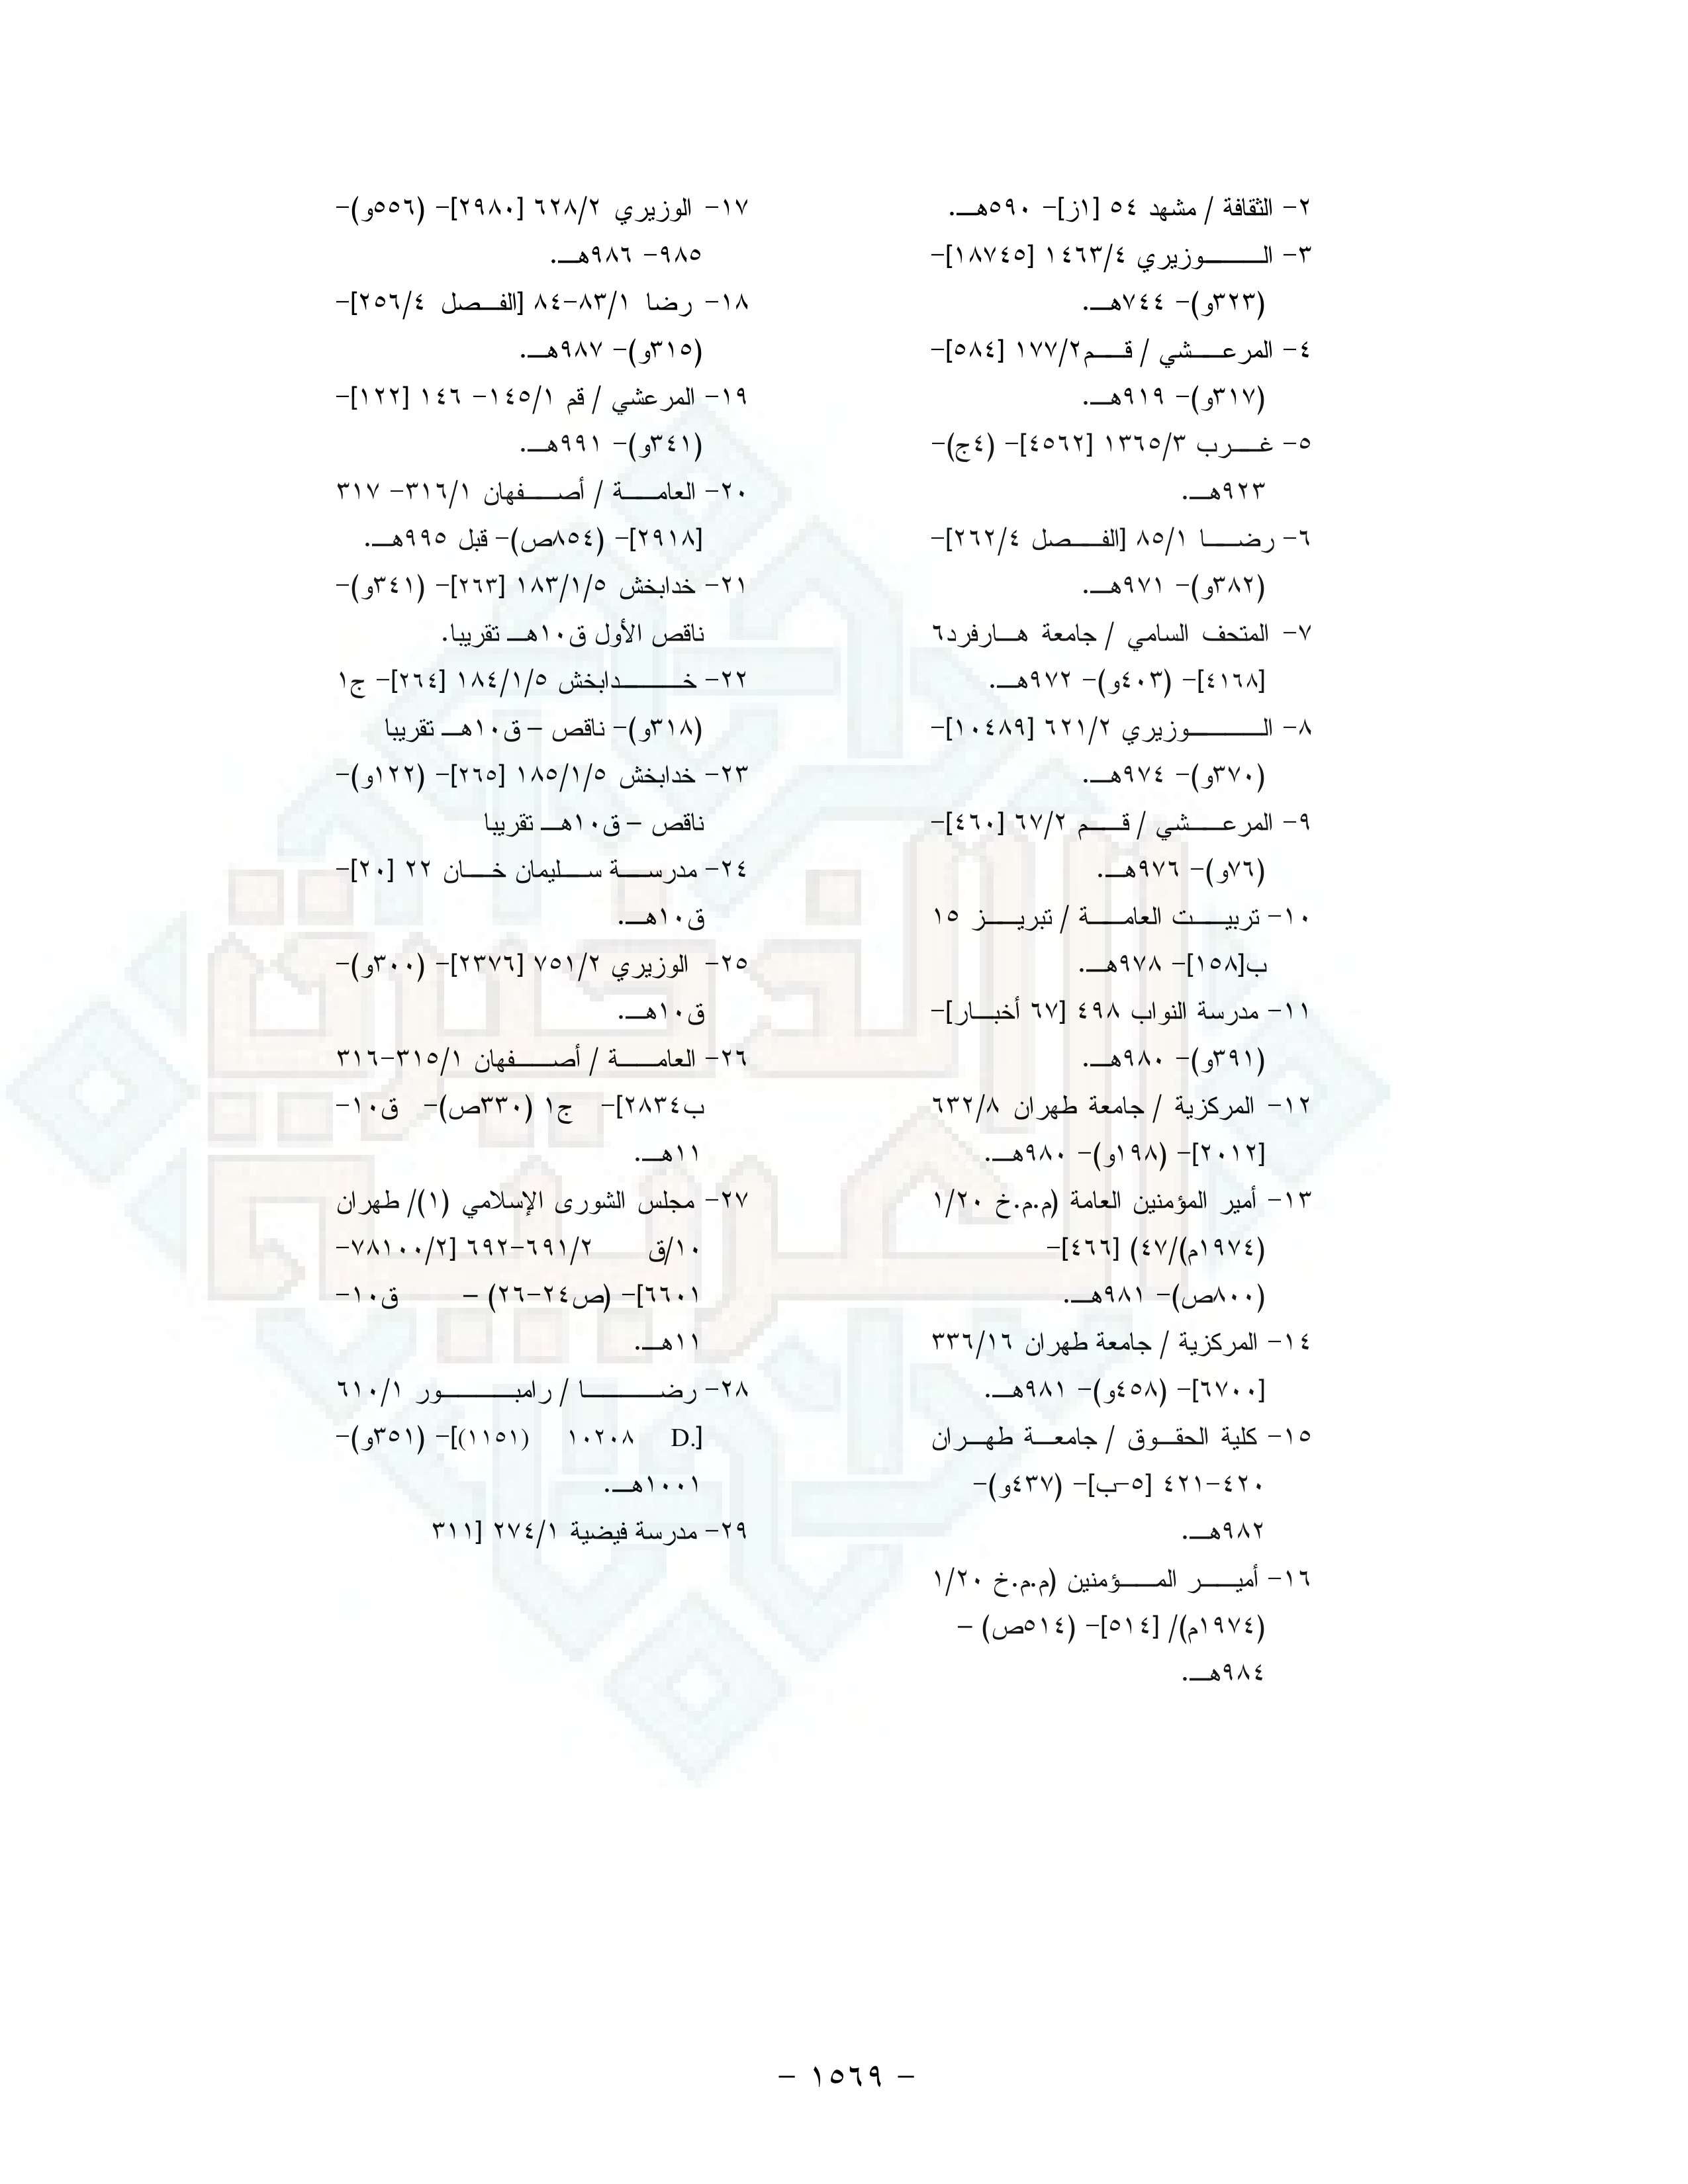 ٢- الثقافة / مشهد ٥٤ [١ز]- ٥٩٠هـ.
٣- الوزيري ١٤٦٣/٤ [١٨٧٤٥]-
(٣٢٣و)- ٧٤٤هـ.
٤- المرعشي / قم١٧٧/٢ [٥٨٤]-
(٣١٧و)- ٩١٩هـ.
٥- غرب ١٣٦٥/٣ [٤٥٦٢]- (٤ج)-
٩٢٣هـ.
٦- رضا ٨٥/١ [الفصل ٢٦٢/٤]-
(٣٨٢و)- ٩٧١هـ.
٧- المتحف السامي / جامعة هارفرد٦
[٤١٦٨]- (٤٠٣و)- ٩٧٢هـ.
٨- الوزيري ٦٢١/٢ [١٠٤٨٩]-
(٣٧٠و)- ٩٧٤هـ.
٩- المرعشي / قم ٦٧/٢ [٤٦٠]-
(٧٦و)- ٩٧٦هـ.
١٠- تربيت العامة / تبريز ١٥
ب[١٥٨]- ٩٧٨هـ.
١١- مدرسة النواب ٤٩٨ [٦٧ أخبار]-
(٣٩١و)- ٩٨٠هـ.
١٢- المركزية / جامعة طهران ٦٣٢/٨
[٢٠١٢]- (١٩٨و)- ٩٨٠هـ.
١٣- أمير المؤمنين العامة (م.م.خ ١/٢٠
(١٩٧٤م)/٤٧) [٤٦٦]-
(٨٠٠ص)- ٩٨١هـ.
١٤- المركزية / جامعة طهران ٣٣٦/١٦
[٦٧٠٠]- (٤٥٨و)- ٩٨١هـ.
١٥- كلية الحقوق / جامعة طهران
٤٢٠-٤٢١ [٥-ب]- (٤٣٧و)-
٩٨٢هـ.
١٦- أمير المؤمنين (م.م.خ ١/٢٠
(١٩٧٤م)/ [٥١٤]- (٥١٤ص) –
٩٨٤هـ.
١٧- الوزيري ٦٢٨/٢ [٢٩٨٠]- (٥٥٦و)-
٩٨٥- ٩٨٦هـ.
١٨- رضا ٨٣/١-٨٤ [الفصل ٢٥٦/٤]-
(٣١٥و)- ٩٨٧هـ.
١٩- المرعشي / قم ١٤٥/١- ١٤٦ [١٢٢]-
(٣٤١و)- ٩٩١هـ.
٢٠- العامة / أصفهان ٣١٦/١- ٣١٧
[٢٩١٨]- (٨٥٤ص)- قبل ٩٩٥هـ.
٢١- خدابخش ١٨٣/١/٥ [٢٦٣]- (٣٤١و)-
ناقص الأول ق١٠هـ تقريبا.
٢٢- خدابخش ١٨٤/١/٥ [٢٦٤]- ج١
(٣١٨و)- ناقص – ق١٠هـ تقريبا
٢٣- خدابخش ١٨٥/١/٥ [٢٦٥]- (١٢٢و)-
ناقص – ق١٠هـ تقريبا
٢٤- مدرسة سليمان خان ٢٢ [٢٠]-
ق١٠هـ.
٢٥- الوزيري ٧٥١/٢ [٢٣٧٦]- (٣٠٠و)-
ق١٠هـ.
٢٦- العامة / أصفهان ٣١٥/١-٣١٦
ب٢٨٣٤]- ج١ (٣٣٠ص)- ق١٠-
١١هـ.
٢٧- مجلس الشورى الإسلامي (١)/ طهران
١٠/ق ٦٩١/٢-٦٩٢ [٧٨١٠٠/٢-
٦٦٠١]- (ص٢٤-٢٦) – ق١٠-
١١هـ.
٢٨- رضا / رامبور ٦١٠/١
[.D ١٠٢٠٨ (١١٥١)]- (٣٥١و)-
١٠٠١هـ.
٢٩- مدرسة فيضية ٢٧٤/١ [٣١١
- ١٥٦٩ -
الذخيرة
العربية